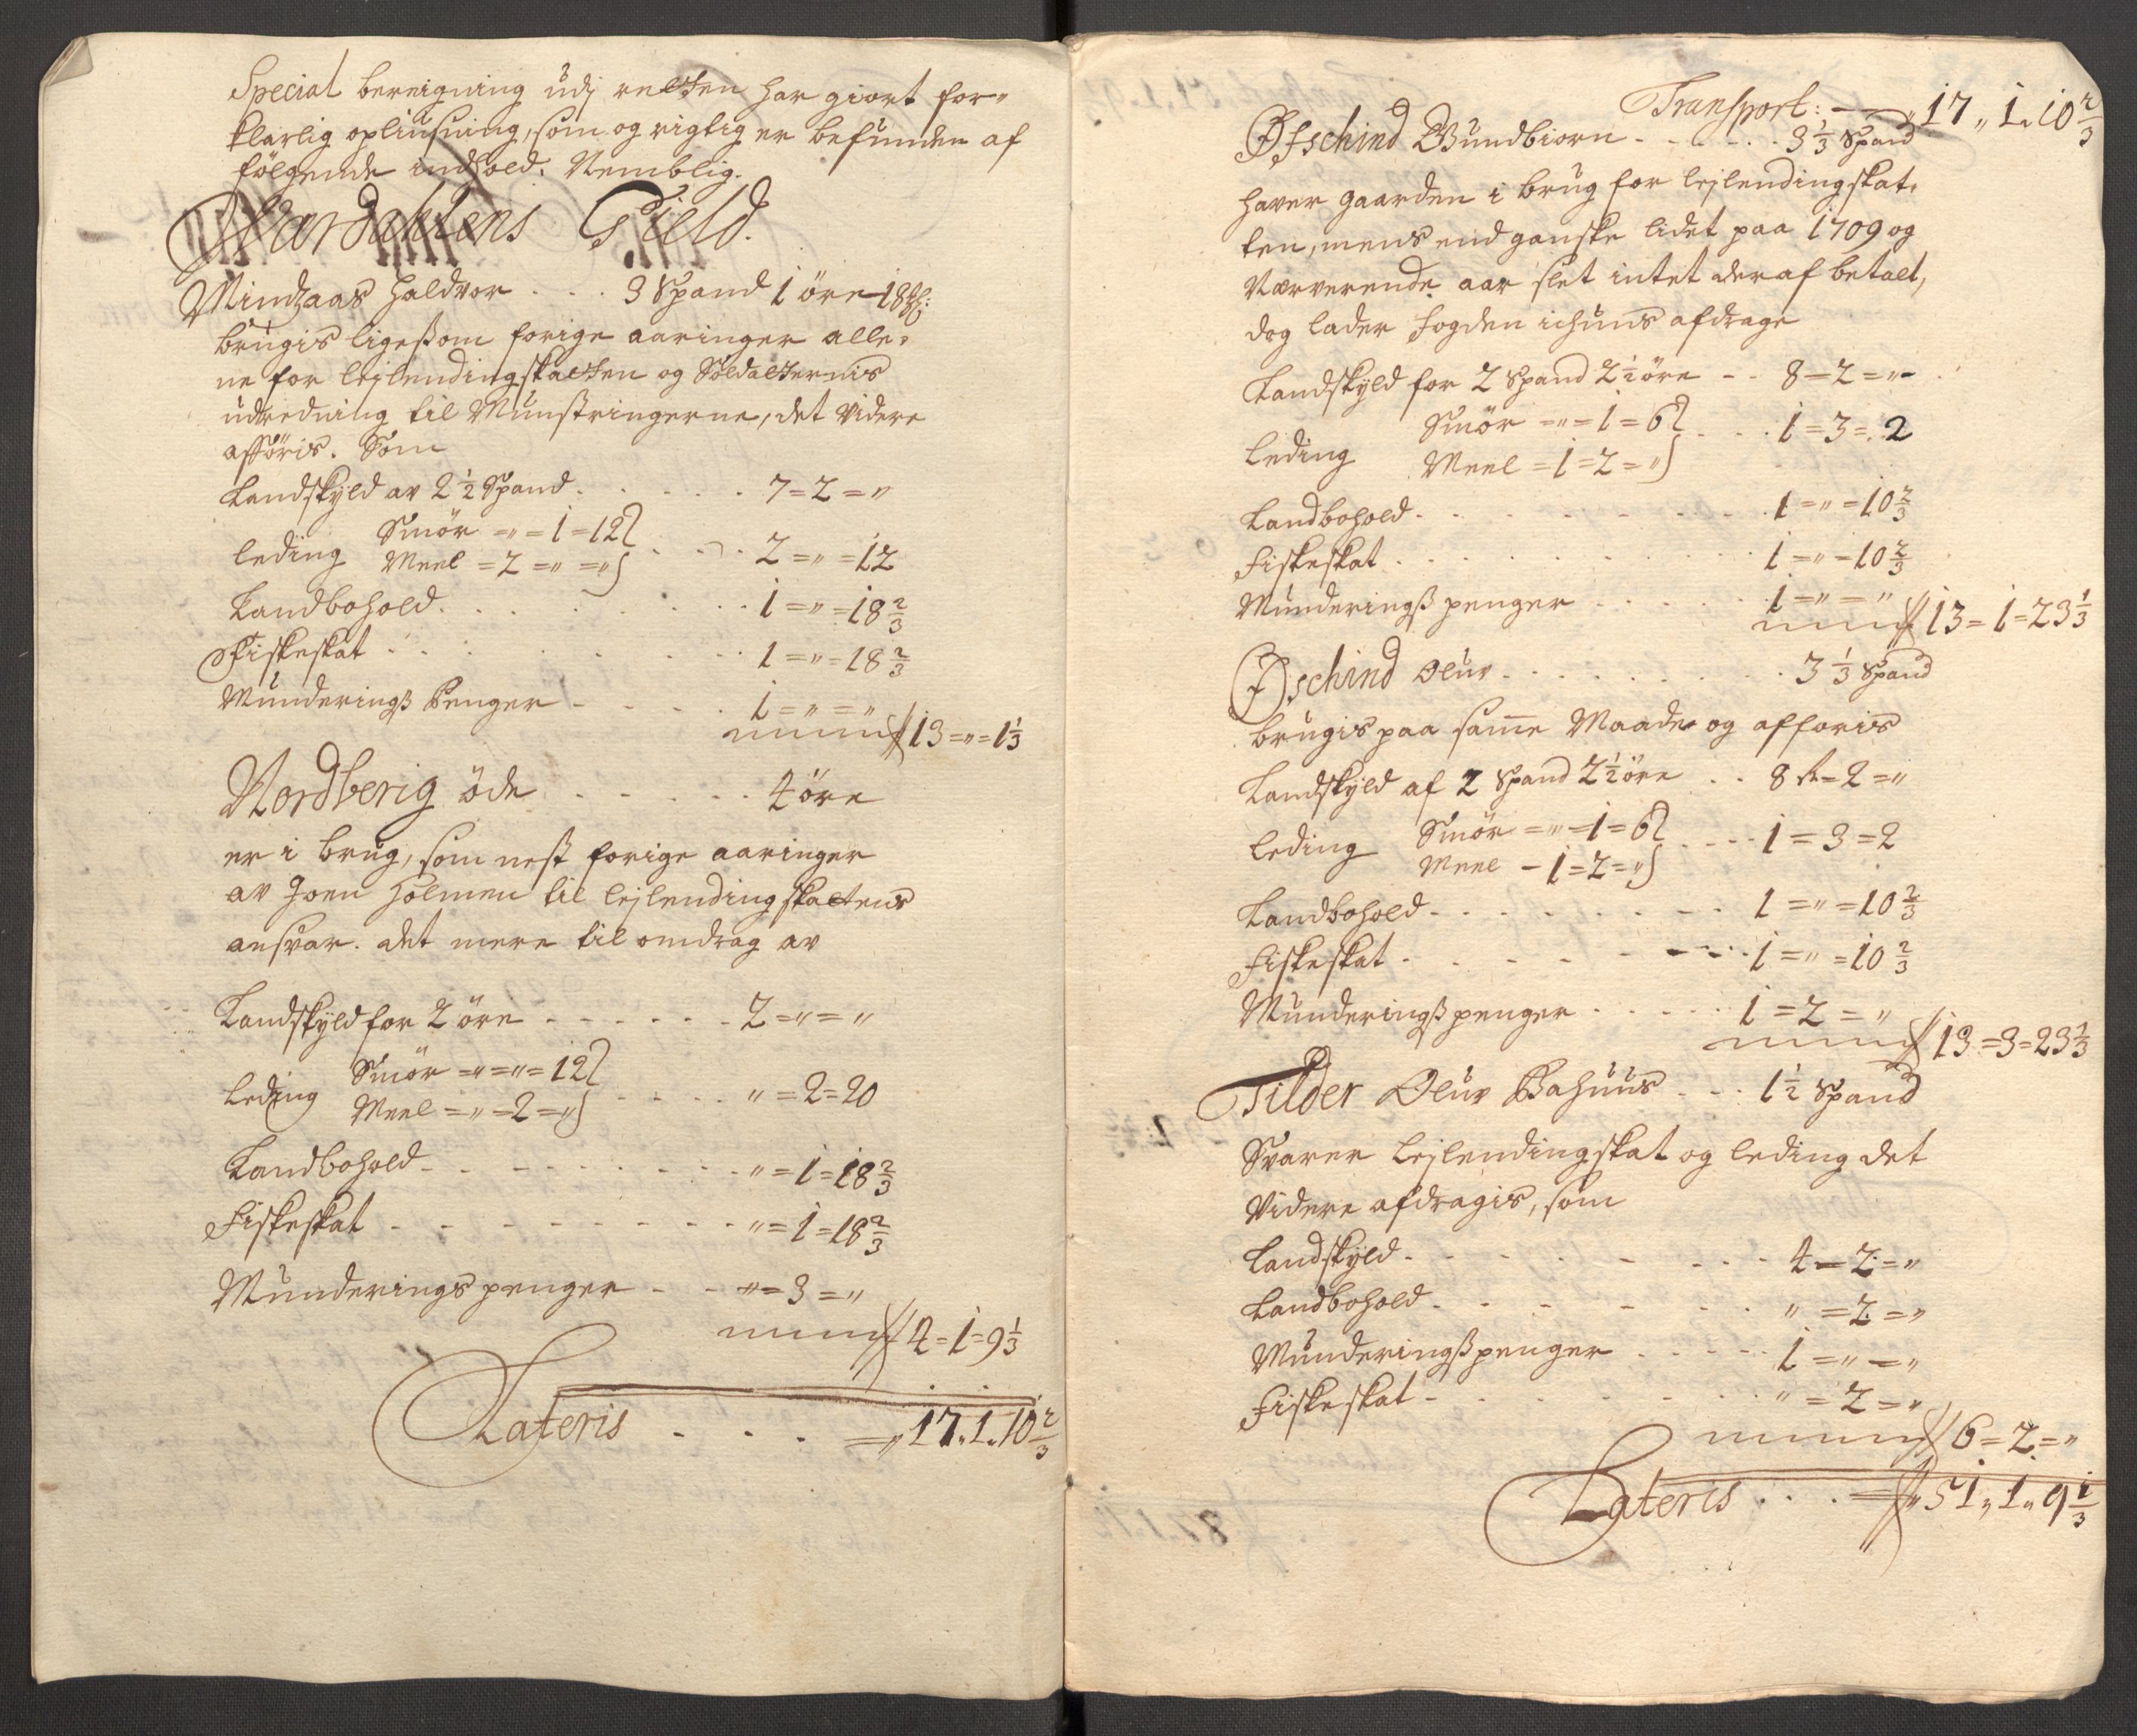 Special bereigning udj retten har giort for-
klarlig opliusning, som og rigtig er befunden af
fölgende indhold. Nemblig.
Værdahlens Gield.
Mindzaas Haldvor . . . 3 Spand 1 öre 18 Mk:
brugis ligesom forige aaringer alle-
ne for lejlendingskatten og Soldatternis
udredning til Munstringerne, det videre
afföris. Som
Landskyld av 2½ Spand . . . . . 7 = 2 = "
Leding Smör = " = 1 = 12
Meel = 2 = " = " . . . 2 = " = 12
Landbohold . . . . . . . . 1 = " = 18 2/3
Fiskeskat . . . . . . . . 1 = " = 18 2/3
Munderingß Penger - . . . . 1 = " = "
13 = " = 1 1/3
Nordberig öde . . . . . . 4 öre
er i brug, som nest forige aaringer
av Joen Holmen til lejlendingskattens
ansvar. det mere til omdrag av
Landskyld for 2 öre - - - - - - 2 = " = "
Leding Smör = " = " = 12
Meel = " = 2 = " . . . . " = 2 = 20
Landbohold - - - - - - - - " = 1 = 18 2/3
Fiskeskat - - - - - - - - " = 1 = 18 2/3
Munderings penger - - - " = 3 = "
4 = 1 = 9 1/3
Lateris . . . = " 17 " 1 " 10 2/3
Transport: — " 17 " 1 " 10 2/3
Øfschind Gundbiorn - - - . . . 3 1/3 Spand
haver gaarden i brug for lejlendingskat-
ten, mens end ganske lidet paa 1709 og
Nærverende aar slet intet deraf betalt,
dog lader fogden ichuns afdrage
Landskyld for 2 Spand 2½ öre - - 8 = 2 = "
Leding Smör = " = 1 = 6
Meel = 1 = 2 = " . . . 1 = 3 = 2
Landbohold - . . . . . . . 1 = " = 10 2/3
Fiskeskat . . . . . . . . 1 = " = 10 2/3
Munderingß penger . . . . . 1 = " = "
13 = 1 = 23 1/3
Øfschind Oluv . . . . . . . . 3 1/3 Spand
brugis paa samme Maade og afforis
Landskyld af 2 Spand 2½ öre . . 8 = 2 = "
Leding Smör = " = 1 = 6
Meel - 1 = 2 = " . . . . 1 = 3 = 2
Landbohold - . . . . . . . 1 = " = 10 2/3
Fiskeskat . . . . . . . . 1 = " = 10 2/3
Munderingß penger . . . . . 1 = 2 = "
13 = 3 = 23 1/3
Tilder Oluv Bahuus . . . 1½ Spand
Svarer Lejlendingskat og leding det
Videre afdragis, som
Landskyld . . . . . . . . 4 = 2 = "
Landbohold . . . . . . . " = 2 = "
Munderingßpenger . . . . . 1 = " = "
Fiskeskat - . . . . . . . " = 2 = "
6 = 2 = "
Lateris . . . = " 51 " 1 " 9 1/3